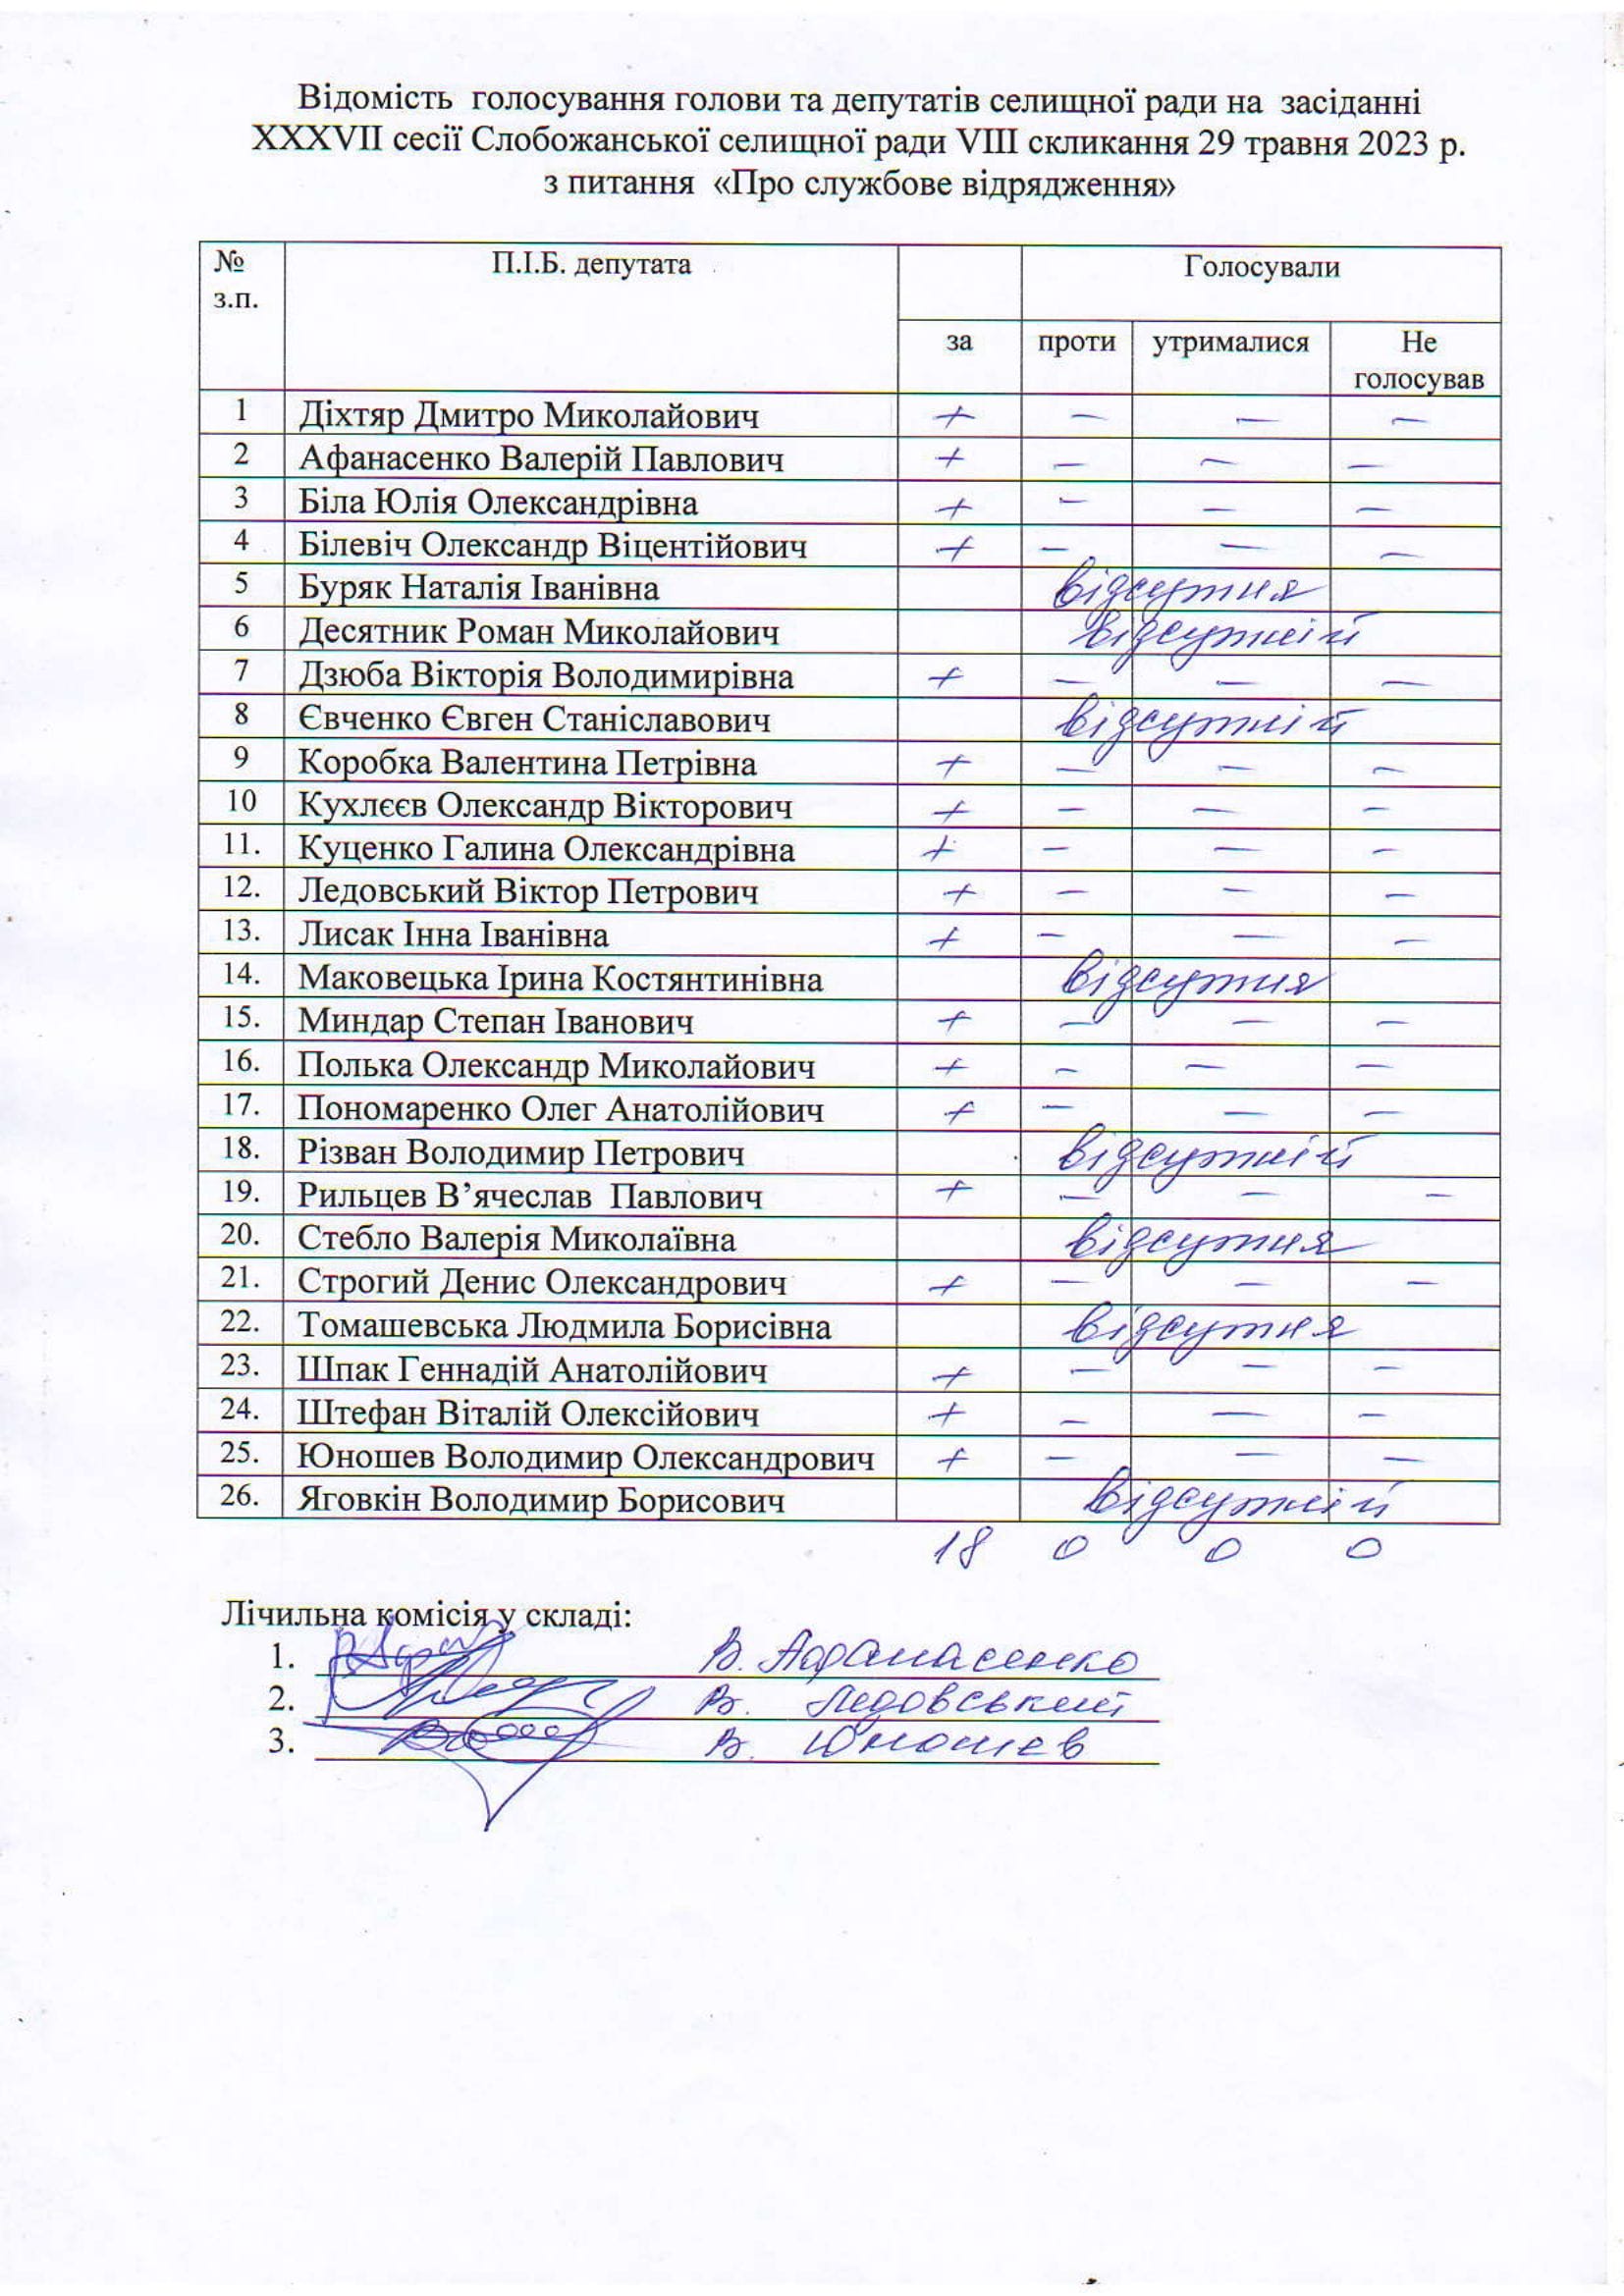 Відомість голосування голови та депутатів селищної ради на засіданні
XXXVII сесії Слобожанської селищної ради VIII скликання 29 травня 2023 р.
з питання «Про службове відрядження»
№ з.п. П.І.Б. депутата Голосували
за проти утрималися Не голосував
1 Діхтяр Дмитро Миколайович + – – –
2 Афанасенко Валерій Павлович + – – –
3 Біла Юлія Олександрівна + – – –
4 Білевіч Олександр Віцентійович + – – –
5 Буряк Наталія Іванівна відсутня
6 Десятник Роман Миколайович відсутній
7 Дзюба Вікторія Володимирівна + – – –
8 Євченко Євген Станіславович відсутній
9 Коробка Валентина Петрівна + – – –
10 Кухлєєв Олександр Вікторович + – – –
11. Куценко Галина Олександрівна + – – –
12. Ледовський Віктор Петрович + – – –
13. Лисак Інна Іванівна + – – –
14. Маковецька Ірина Костянтинівна відсутня
15. Миндар Степан Іванович + – – –
16. Полька Олександр Миколайович + – – –
17. Пономаренко Олег Анатолійович + – – –
18. Різван Володимир Петрович відсутній
19. Рильцев В’ячеслав Павлович + – – –
20. Стебло Валерія Миколаївна відсутня
21. Строгий Денис Олександрович + – – –
22. Томашевська Людмила Борисівна відсутня
23. Шпак Геннадій Анатолійович + – – –
24. Штефан Віталій Олексійович + – – –
25. Юношев Володимир Олександрович + – – –
26. Яговкін Володимир Борисович відсутній
18 0 0 0
Лічильна комісія у складі:
1. В. Афанасенко
2. В. Ледовський
3. В. Юношев